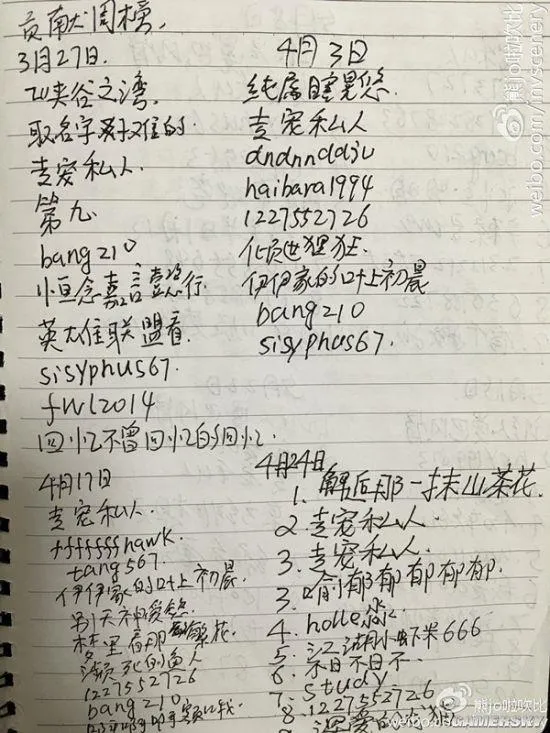 贡献周榜.
3月27日.
取名字好难的
专宠私人.
第九.
bang210
英雄联盟看.
sisyphus67
fwl2014
回忆不曾回忆的回忆.
4月3日
纯属瞎晃悠.
专宠私人
dndnnddju
haibara1994
1227552726
伊伊家的叶上初晨
bang210
sisyphus67.
4月17日
专宠私人.
fffffffhawk.
tang567.
伊伊家的叶上初晨.
梦里看那 繁花.
濒死的鱼人
1227552726
bang210.
4月24日
1. 邂逅那一抹山茶花.
2. 专宠私人.
3. 专宠私人.
3. 喻郁郁郁郁郁.
4. holle淼.
5. 江湖小虾米666
6. 不日不日不.
7. study
8. 1227552726
深爱的
熊jo啦吹比
weibo.com/invscenery
熊jo啦吹比
GAMERSKY